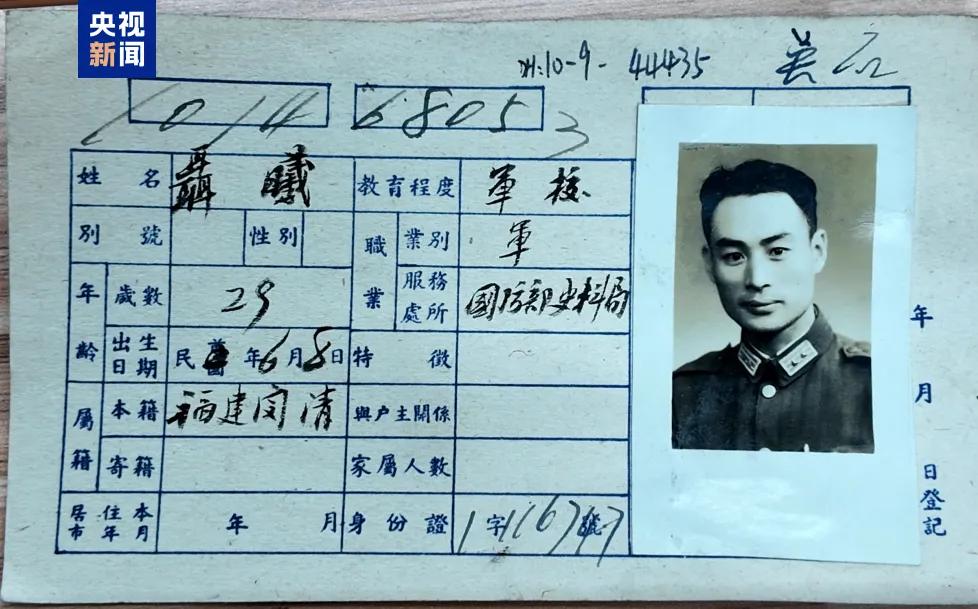 央视
新闻
10-9- 44435
1014 68053
姓名 聶曦 教育程度 軍校
別號 性別 職業 業別 軍
年齡 歲數 29 服務處所 國防部史料局
出生日期 民國 年6月8日 特徵
屬籍 本籍 福建閩清 與戶主關係
寄籍 家屬人數
居住本市年月 年 月 身份證 1字 號
年 月 日登記